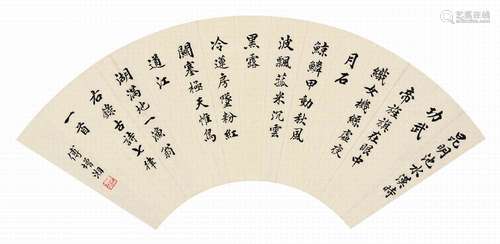 昆明池水漢時
功武
帝旌旗在眼中
織女機絲虛夜
月石
鯨鱗甲動秋風
波飄菰米沉雲
黑露
冷蓮房墜粉紅
關塞極天惟鳥
道江
湖滿地一漁翁
右錄古詩七律
一首 傅增湘
艺狐在线